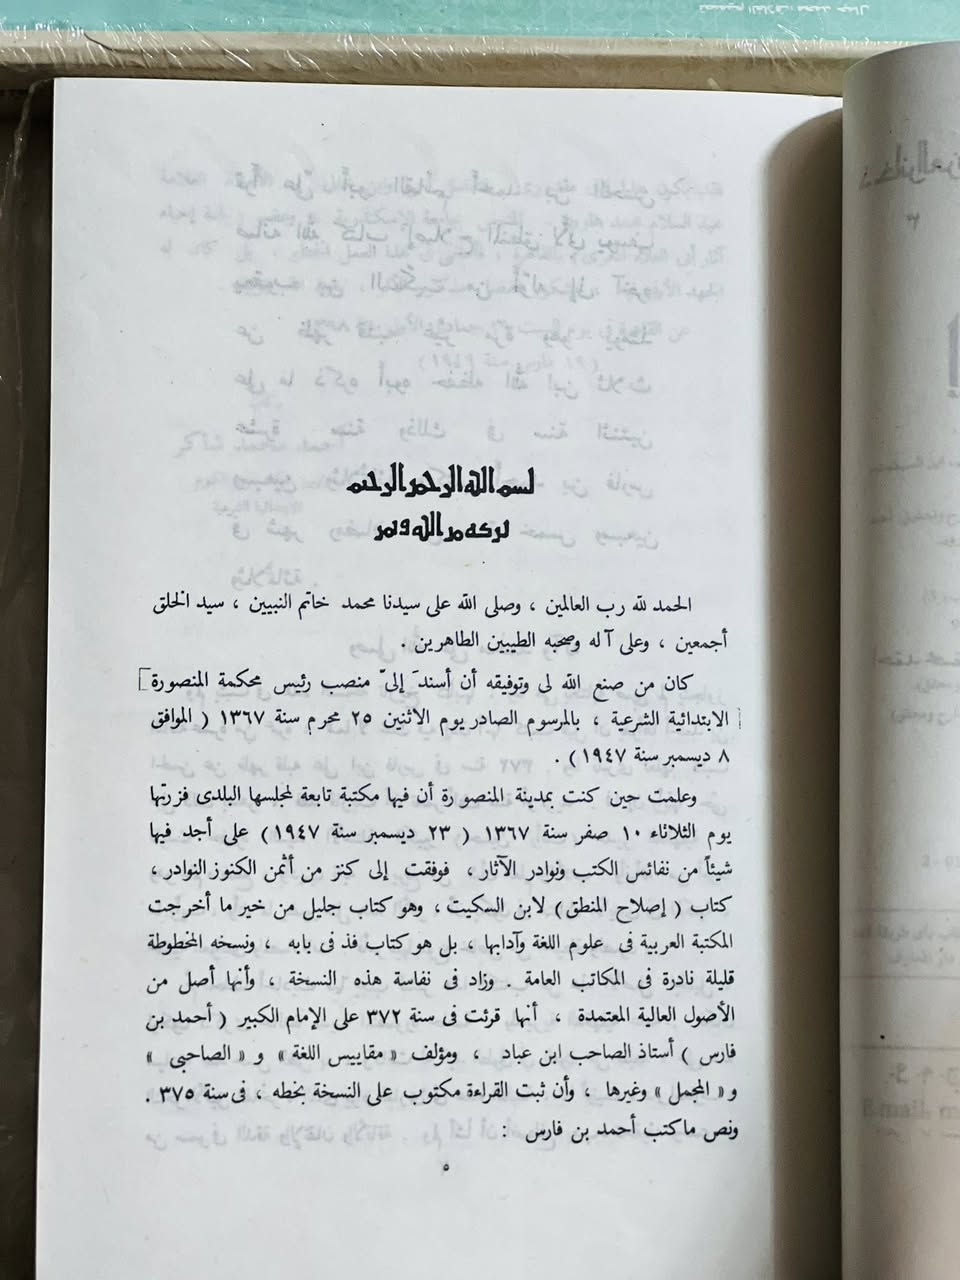 بسم الله الرحمن الرحيم
بركة من الله ونمر
الحمد لله رب العالمين ، وصلى الله على سيدنا محمد خاتم النبيين ، سيد الخلق
أجمعين ، وعلى آله وصحبه الطيبين الطاهرين .
كان من صنع الله لى وتوفيقه أن أسندَ إلىّ منصب رئيس محكمة المنصورة
الابتدائية الشرعية ، بالمرسوم الصادر يوم الاثنين ٢٥ محرم سنة ١٣٦٧ ( الموافق
٨ ديسمبر سنة ١٩٤٧ ) .
وعلمت حين كنت بمدينة المنصورة أن فيها مكتبة تابعة لمجلسها البلدى فزرتها
يوم الثلاثاء ١٠ صفر سنة ١٣٦٧ ( ٢٣ ديسمبر سنة ١٩٤٧ ) على أجد فيها
شيئاً من نفائس الكتب ونوادر الآثار ، فوفقت إلى كنز من أثمن الكنوز النوادر ،
كتاب ( إصلاح المنطق ) لابن السكيت ، وهو كتاب جليل من خير ما أخرجت
المكتبة العربية فى علوم اللغة وآدابها ، بل هو كتاب فذ فى بابه ، ونسخه المخطوطة
قليلة نادرة فى المكاتب العامة . وزاد فى نفاسة هذه النسخة ، وأنها أصل من
الأصول العالية المعتمدة ، أنها قرئت فى سنة ٣٧٢ على الإمام الكبير ( أحمد بن
فارس ) أستاذ الصاحب ابن عباد ، ومؤلف « مقاييس اللغة » و « الصاحبى »
و « المجمل » وغيرها ، وأن ثبت القراءة مكتوب على النسخة بخطه ، فى سنة ٣٧٥ .
ونص ماكتب أحمد بن فارس :
٥